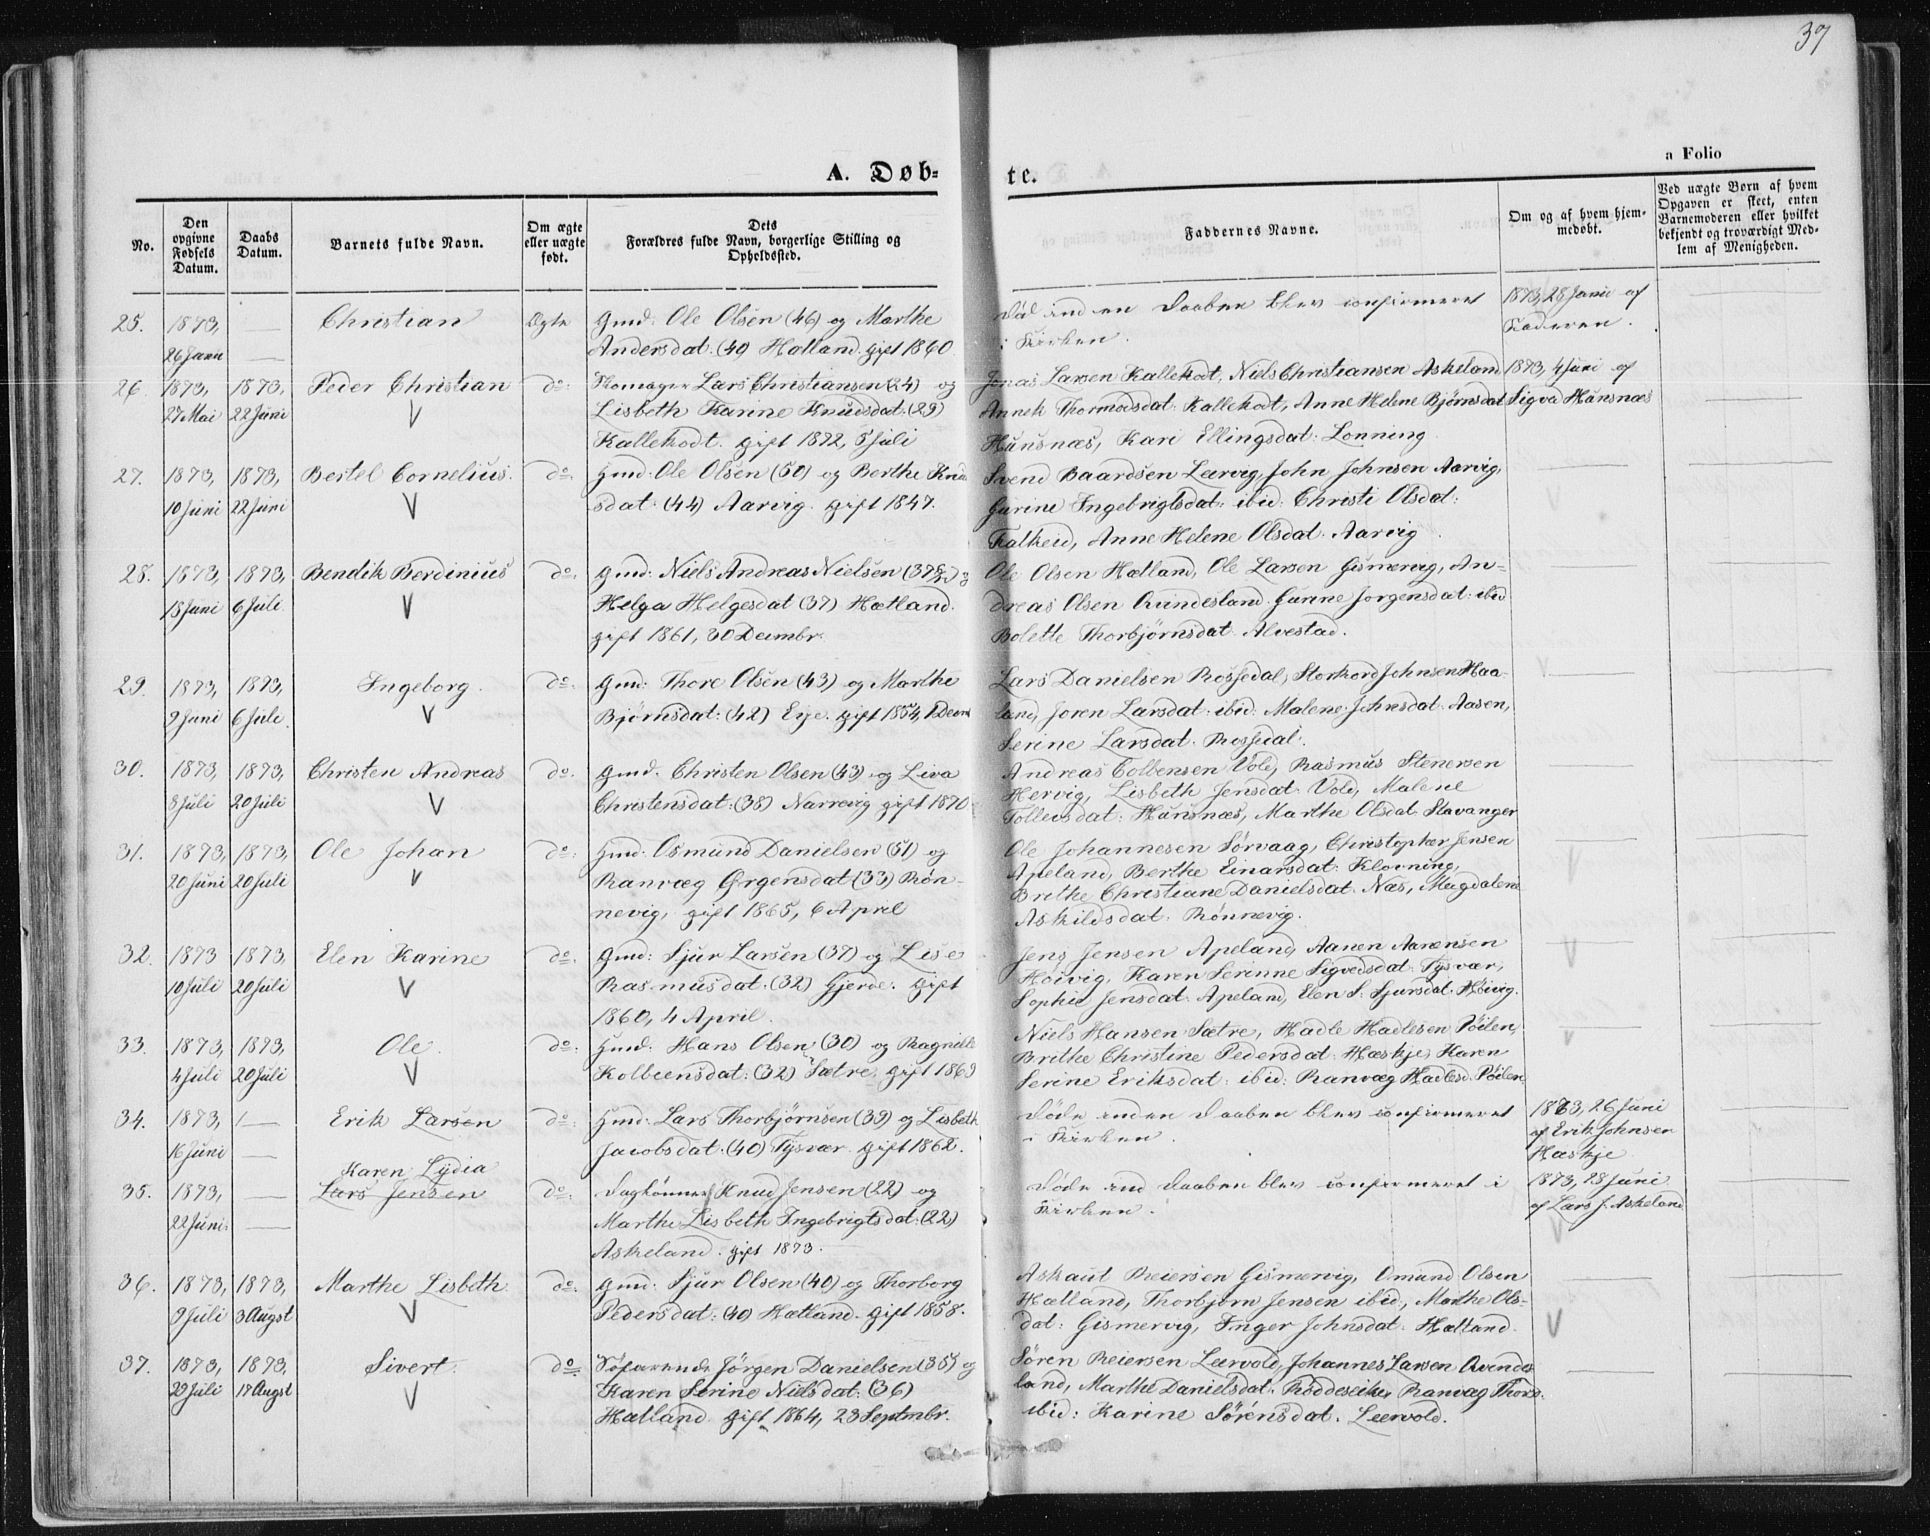 37
A. Døb-
te.
a Folio
No.
Den opgivne Fødsels Datum.
Daabs Datum.
Barnets fulde Navn.
Om ægte eller uægte født.
Dets Forældres fulde Navn, borgerlige Stilling og Opholdssted.
Faddernes Navne.
Om og af hvem hjemmedøbt.
Ved uægte Børn af hvem Opgaven er skeet, enten Barnemoderen eller hvilket bekjendt og troværdigt Medlem af Menigheden.
25. 1873, — Christian Ægte Gmd: Ole Olsen (46) og Marthe
26 Juni — Andersdat. (40) Hetland. gift 1860
Daaben blev confirmeret
i Kirken.
1873, 28 Juni af
Faderen.
26. 1873, 1873, Peder Christian do: Lars Christiansen (24) og
27 Mai 22 Juni V Lisbeth Karine Knudsdat: (29)
Kallekodt. gift 1872, 5 Juli
Jonas Larsen Kallekodt, Niels Christiansen Askeland
Thormodsdat: Kallekodt, Anne Helene Bjørnsdat
Hunsnæs, Kari Ellingsdat: Lonning
1873, 4 Juni af
Sigva Hunsnæs
27. 1873, 1873, Bertel Cornelius. do: Gmd: Ole Olsen (50) og Berthe Knud
10 Juni 22 Juni V sdat: (44) Aarvig. gift 1847.
Svend Baardsen Leervig, John Johnsen Aarvig,
Gurine Ingebrigtsdat: ibid: Christi Olsdat:
Falkeid, Anne Helene Olsdat: Aarvig.
28. 1873, 1873, Bendik Berdinius do: Gmd: Niels Andreas Nielsen
18 Juni 6 Juli. V Helga Helgesdat (37) Hetland.
gift 1861, 30 Decmbr.
Ole Olsen Hetland, Ole Larsen Gismervig, An-
dreas Olsen Qvindesland. Gunne Jorgensdat: ibid
Bolette Thorbjørnsdat. Alvestad.
29. 1873, 1873, Ingeborg. do: Gmd: Thore Olsen (43) og Marthe
9 Juni 6 Juli. V Bjørnsdat: (42) Eye. gift 1854,
Lars Danielsen Rossedal, Storkord Johnsen Haa-
land, Joren Larsdat: ibid: Malene Johnsdat: Aasen,
Serine Larsdat: Rossedal.
30. 1873, 1873, Christen Andreas do: Gmd: Christen Olsen (43) og Liva
8 Juli 20 Juli V Christensdat: (38) Narrevig gift 1870
Andreas Colbensen Vold, Rasmus Stenersen
Hervig, Lisbeth Jensdat: Vold, Malene
Tollevsdat: Hunsnæs, Marthe Olsdat. Stavanger
31. 1873, 1873, Ole Johan do: Gmd: Osmund Danielsen (51) og
20 Juni 20 Juli V Ranvæg Ørgensdat (33) Røn-
nevig, gift 1865, 6 April
Ole Johannesen Sørvaag, Christopher Jensen
Apeland, Berthe Einarsdat: Klovning,
Brithe Christiane Danielsdat: Næs, Magdalene
Askildsdat: Rønnevig.
32. 1873 1873, Elen Karine do: Gmd: Sjur Larsen (37) og Lise
10 Juli 20 Juli V Rasmusdat: (32) Gjerde. gift
1860, 4 April.
Jens Jensen Apeland, Aanen Aanensen
Høivig, Karen Serinne Sigvedsdat: Tysvær,
Sophie Jensdat: Apeland, Elen S: Sjursdat. Høivig.
33. 1873, 1873, Ole. do: Gmd: Hans Olsen (30) og Ragnille
4 Juli 20 Juli V Kolbeensdat: (32) Sætre. gift 1869
Niels Hansen Sætre, Hadle Hadlesen Pøilen,
Brithe Christine Pedersdat: Hæskje, Karen
Serine Eriksdat: ibid: Ranvæg Hadlesd. Pøilen
34. 1873, — Erik Larsen do: Gmd: Lars Thorbjørnsen (39) og Lisbeth
16 Juni — Jacobsdat: (40) Tysvær. gift 1862.
Døde inden Daaben blev confirmeret
i Kirken.
1873, 26 Juni
af Erik Johnsen
Hæskje
Karen Lydia
35. 1873, — Lars Jensen do: Knud Jensen (22) og
22 Juni: — Marthe Lisbeth Ingebrigtsdat: (22)
Askeland. gift 1873.
Døde ind Daaben blev confirmeret i
Kirken.
1873, 28 Juni
af Lars J. Askeland
36. 1873, 1873, Marthe Lisbeth do: Gmd: Sjur Olsen (40) og Thorborg
9 Juli 3 Augst V Pedersdat: (40) Hetland. gift 1858.
Askaut Reiersen Gismervig, Omund Olsen
Hetland, Thorbjørn Jensen ibid:, Marthe Ols-
dat: Gismervig, Inger Johnsdat: Hetland
37. 1873, 1873, Sivert. do: Jørgen Danielsen (35) og
29 Juli 17 Augst V Karen Serine Nielsdat: (36)
Hetland. gift 1864, 23 Septmbr.
Søren Reiersen Leervold, Johannes Larsen Qvindes
land, Marthe Danielsdat. Røddeseike, Ranvæg Thors.
ibid: Karine Sørensdat. Leervold.